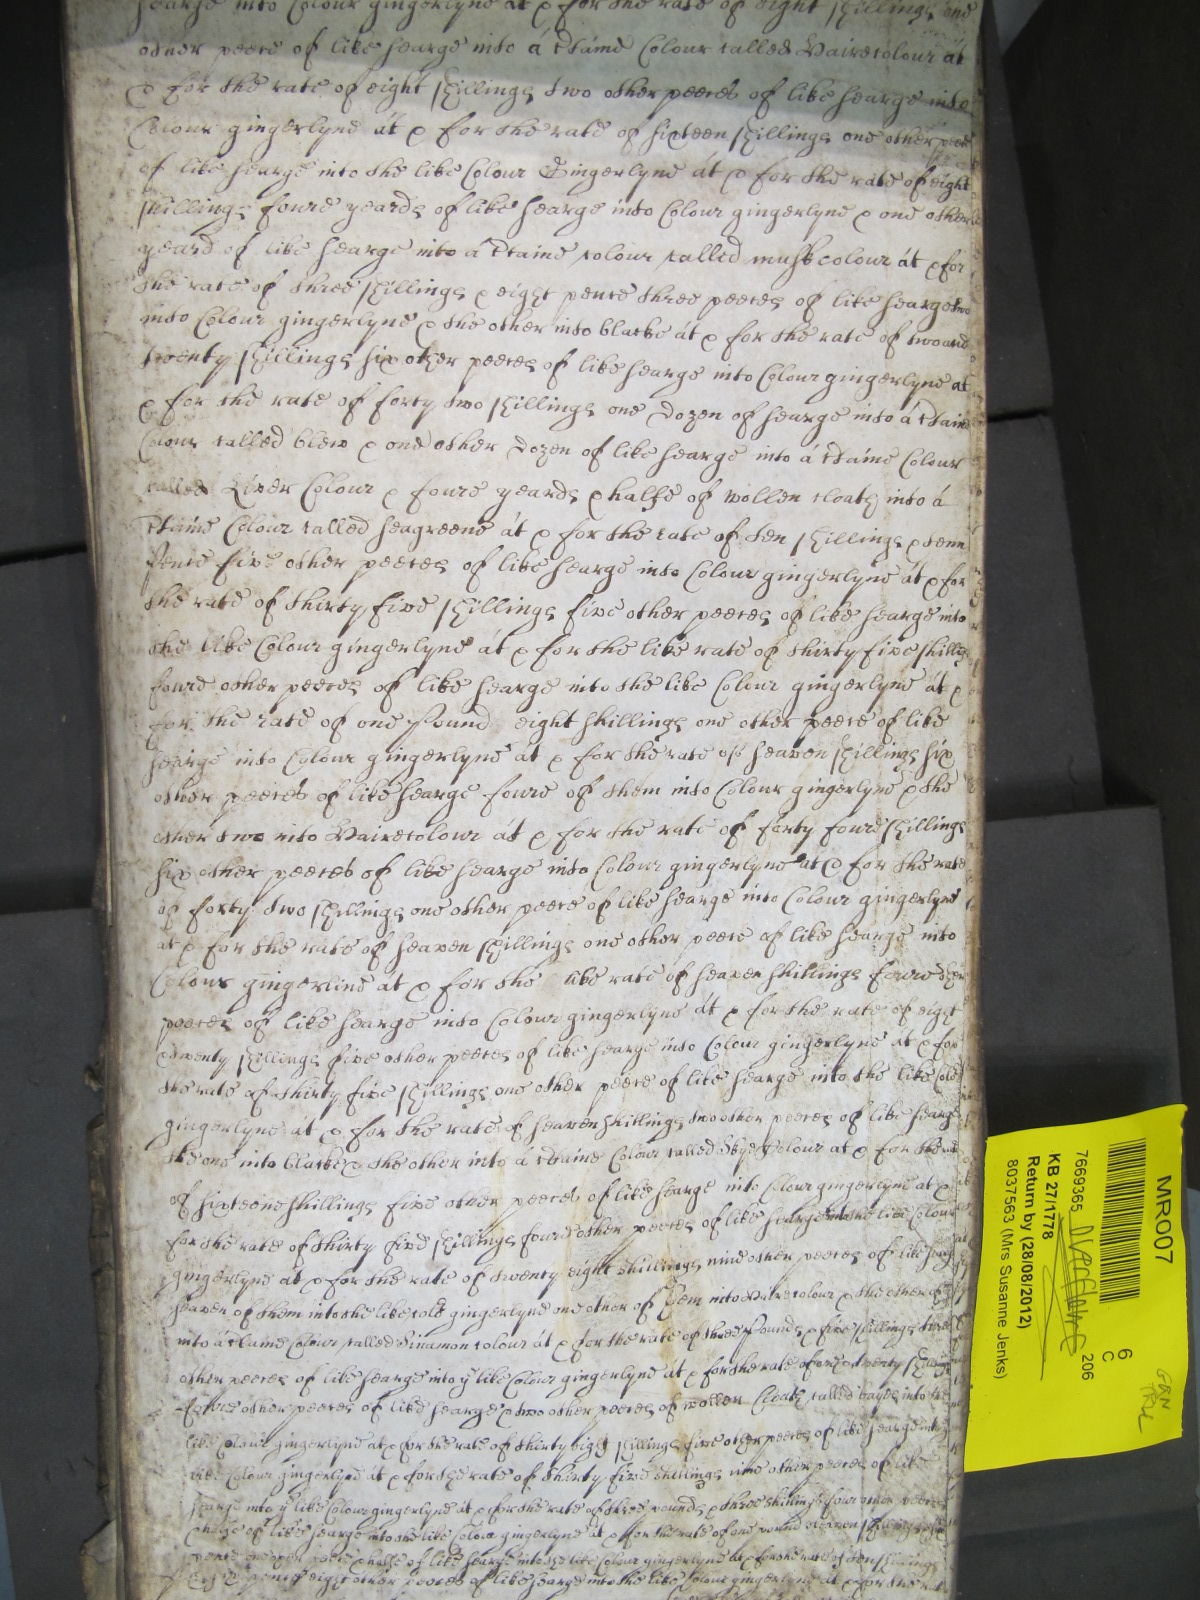 hearge into Colour gingerlyne at & for the rate of eight shillings one
other peece of like hearge into a Ctaine Colour called Hairecolour at
& for the rate of eight shillings two other peeces of like hearge into
Colour gingerlyne at & for the rate of sixteen shillings one other peece
of like hearge into the like Colour Gingerlyne at & for the rate of eight
shillings foure yeards of like hearge into Colour gingerlyne & one other
yeard of like hearge into a Ctaine colour called musk colour at & for
the rate of three shillings & eight pence three peeces of like hearge two
into Colour gingerlyne & the other into blacke at & for the rate of two and
twenty shillings six other peeces of like hearge into Colour gingerlyne at
& for the rate of forty two shillings one dozen of hearge into a Ctaine
Colour called blew & one other dozen of like hearge into a Ctaine Colour
called Liver Colour & foure yeards & halfe of wollen cloath into a
Ctaine Colour called seagreene at & for the rate of ten shillings & tenn
pence five other peeces of like hearge into Colour gingerlyne at & for
the rate of thirty five shillings five other peeces of like hearge into
the like Colour gingerlyne at & for the like rate of thirty five shillings
foure other peeces of like hearge into the like Colour gingerlyne at &
for the rate of one Pound eight shillings one other peece of like
hearge into Colour gingerlyne at & for the rate of heaven shillings six
other peeces of like hearge foure of them into Colour gingerlyne & the
other two into Hairecolour at & for the rate of forty foure shillings
six other peeces of like hearge into Colour gingerlyne at & for the rate
of forty two shillings one other peece of like hearge into Colour gingerlyne
at & for the rate of heaven shillings one other peece of like hearge into
Colour gingerline at & for the like rate of heaven shillings foure other
peeces of like hearge into Colour gingerlyne at & for the rate of eight
& twenty shillings five other peeces of like hearge into Colour gingerlyne at & for
the rate of thirty five shillings one other peece of like hearge into the like Colour
gingerlyne at & for the rate of heaven shillings two other peeces of like hearge
the one into blacke & the other into a Ctaine Colour called Skye Colour at & for the rate
of sixteene shillings five other peeces of like hearge into Colour gingerlyne at &
for the rate of thirty five shillings foure other peeces of like hearge into the like Colour
gingerlyne at & for the rate of twenty eight shillings nine other peeces of like hearge
heaven of them into the like Colr gingerlyne one other of them into Hairecolour & the other
into a Ctaine Colour called Sinamon colour at & for the rate of three Pounds & five shillings three
other peeces of like hearge into ye like Colour gingerlyne at & for the rate of one & twenty shillings
foure other peeces of like hearge & two other peeces of wollen Cloath called bayes into the
like Colour gingerlyne at & for the rate of thirty eight shillings five other peeces of like hearge into ye
like Colour gingerlyne at & for the rate of thirty five shillings nine other peeces of like
hearge into ye like Colour gingerlyne at & for the rate of three pounds & three shillings foure other peeces
& halfe of like hearge into the like Colour gingerlyne at & for the rate of one pound eleaven shillings
pence one other peece & halfe of like hearge into the like Colour gingerlyne at & for the rate of ten shillings
pence eight other peeces of like hearge into the like Colour gingerlyne at & for the rate
MR007
6
C
206
7669365
KB 27/1778
Return by (28/08/2012)
8037563 (Mrs Susanne Jenks)